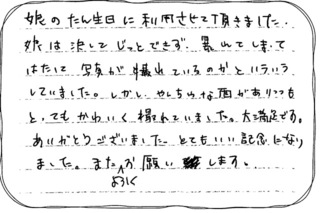 娘のたん生日に利用させて頂きました.
娘は決してじっとできず. 暴れてしまって
はたして写真が撮れているのかとイライラ
していました。しかし. やんちゃな面がありつつも
とてもかわいく撮れていました。大満足です。
ありがとうございました― とてもいい記念になり
ました。またお願い致します。
よろしく